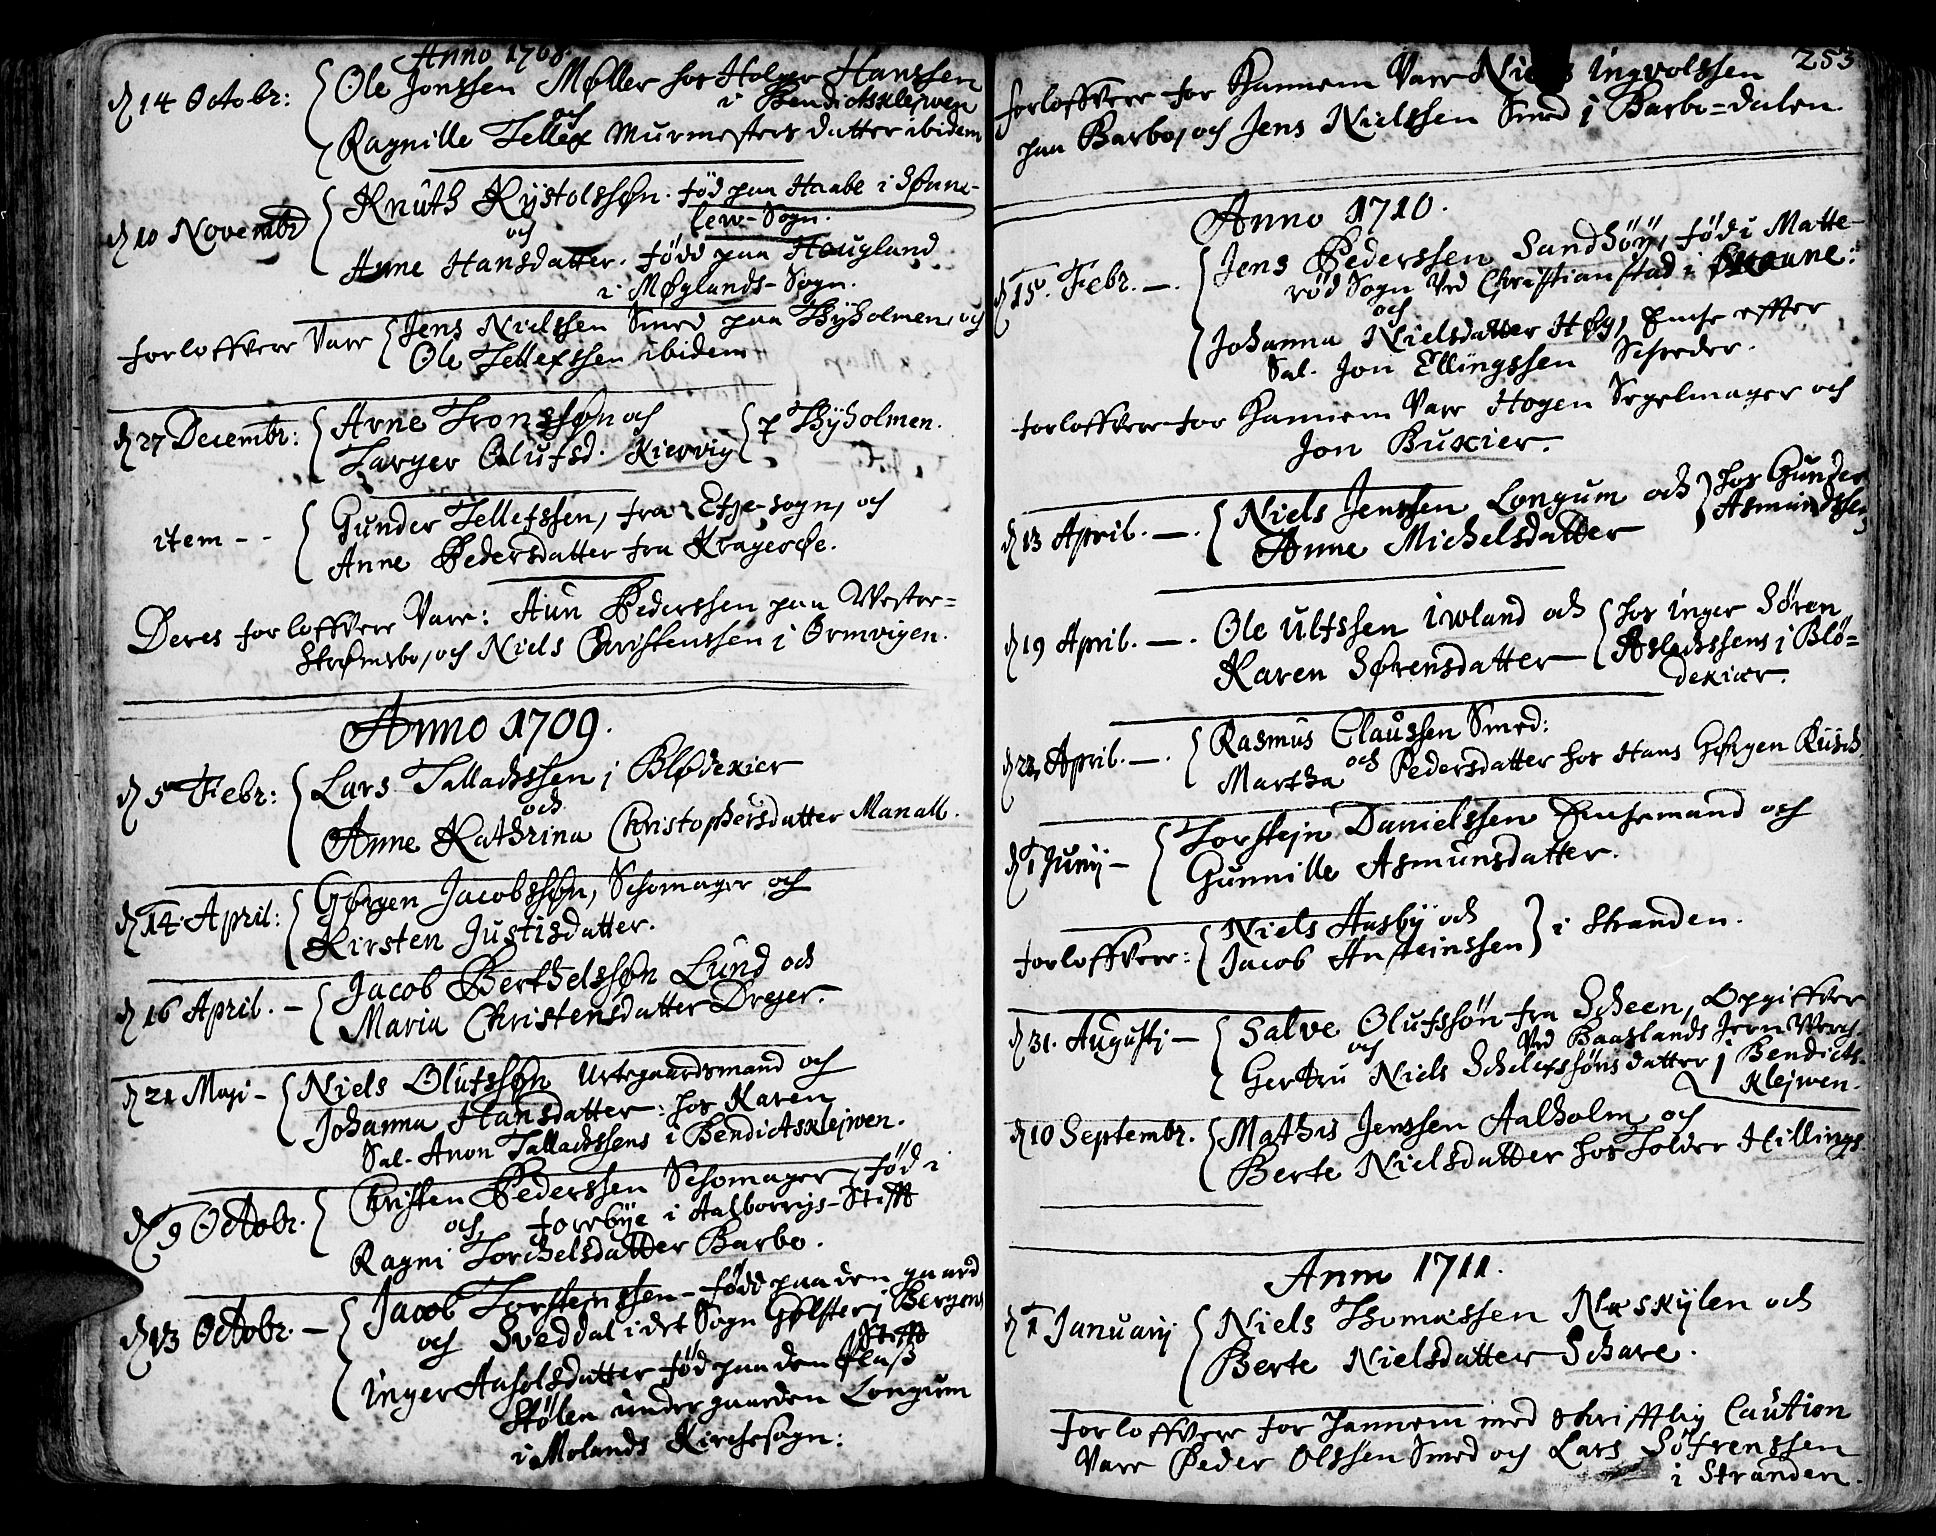 Anno 1708.
d 14 Octobr: Ole Jonssen Møller hos Holger Hanssen
i Bendictsklejwen
och
Ragnille Tellefs Murmesters datter ibidem
d 10 Novembr Knuth Kystolssøn. fød paa Haabe i Sønne-
lew-Sogn.
och
Anne Hansdatter. fødd paa Hougland
i Møglands-Sogn.
forloffvere Vare Jens Nielssen Smed paa Thyholmen, och
Ole Tellefssen ibidem
d 27 Decembr: Arne Tronssøn och
Targer Olufsd. Kiervig
Thyholmen.
item - - Gunder Tellefssen, fra Etje-sogn, och
Anne Pedersdatter fra Kragerøe.
Deres forloffvere Vare: Aun Pederssen paa Wester=
Strømsbo, och Niels Christenssen i Ormvigen.
Anno 1709.
d 5 Febr: Lars Talladssen i Blødekier
och
Anne Kathrina Christophersdatter Manall.
d 14 April: Gørgen Jacobssøn, Schomager och
Kirsten Justisdatter.
d 16 April. - Jacob Berthelssøn Lund och
Maria Christensdatter Dreyer.
d 21 Maji - Niels Olufssøn Urtegaardsmand och
Johanna Hansdatter: hos Karen
Sal. Anon Talladssens i Bendictsklejwen.
d 9 Octobr. Christen Pederssen Schomager, fød i
och Torrbye i Aalborrigs-Stifft
Ragni Torchelsdatter Barbo.
d 13 Octobr. - Jacob Torsteinssen - fødd paa den gaard
och Sveddal i det Sogn Gølster i Bergens
Stifft
Inger Aasolsdatter fød paa den Plass
Stølen under gaarden Longum
i Molands Kirchesogn:
253
forloffvere for hannem Vare Niels Ingvolssen
paa Barbo, och Jens Nielssen Smed i Barbo=dalen
Anno 1710.
d 15. Febr. -. Jens Pederssen Sandhøÿ, fød i Matte-
rød Sogn Ved Christianstad i Skaane:
och
Johanna Nielsdatter Høg, Encke effter
Sal. Jon Ellingssen Schreder.
forloffvere for hannem Vare Hogen Segelmager och
Jon Buxier.
d 13 April. -. Niels Jenssen Longum och
Anne Michelsdatter
hos Gunder
Asmundssen
d 19 April. -. Ole Ulfssen Iwland och
Karen Sørensdatter
hos Inger Søren
Asladssens i Blø=
dekiær.
d 22 April. -. Rasmus Claussen Smed:
och
Martha Pedersdatter hos Hans Gørgen Rusch
d 1 Junij - Torstejn Danielssen Enchemand och
Gunnille Asmunsdatter.
forloffvere: Niels Aasby och
Jacob Ansteinssen
i Stranden.
d 31. Augustj - Salve Olufssøn fra Scheen, Opgiffver
Ved Baaslands Jern Werch.
och
Gertru Niels Schelefssøns datter i Bendicts-
klejwen.
d 10 Septembr. Mathis Jenssen Aalholm och
Berte Nielsdatter hos Tolder Hillings.
Anno 1711.
d 1 Januarij Niels Thomassen Næskylen och
Berte Nielsdatter Schare.
forloffvere for hannem med schrifftlig Caution
Vare Peder Olssen Smed och Lars Søfrenssen
i Stranden.